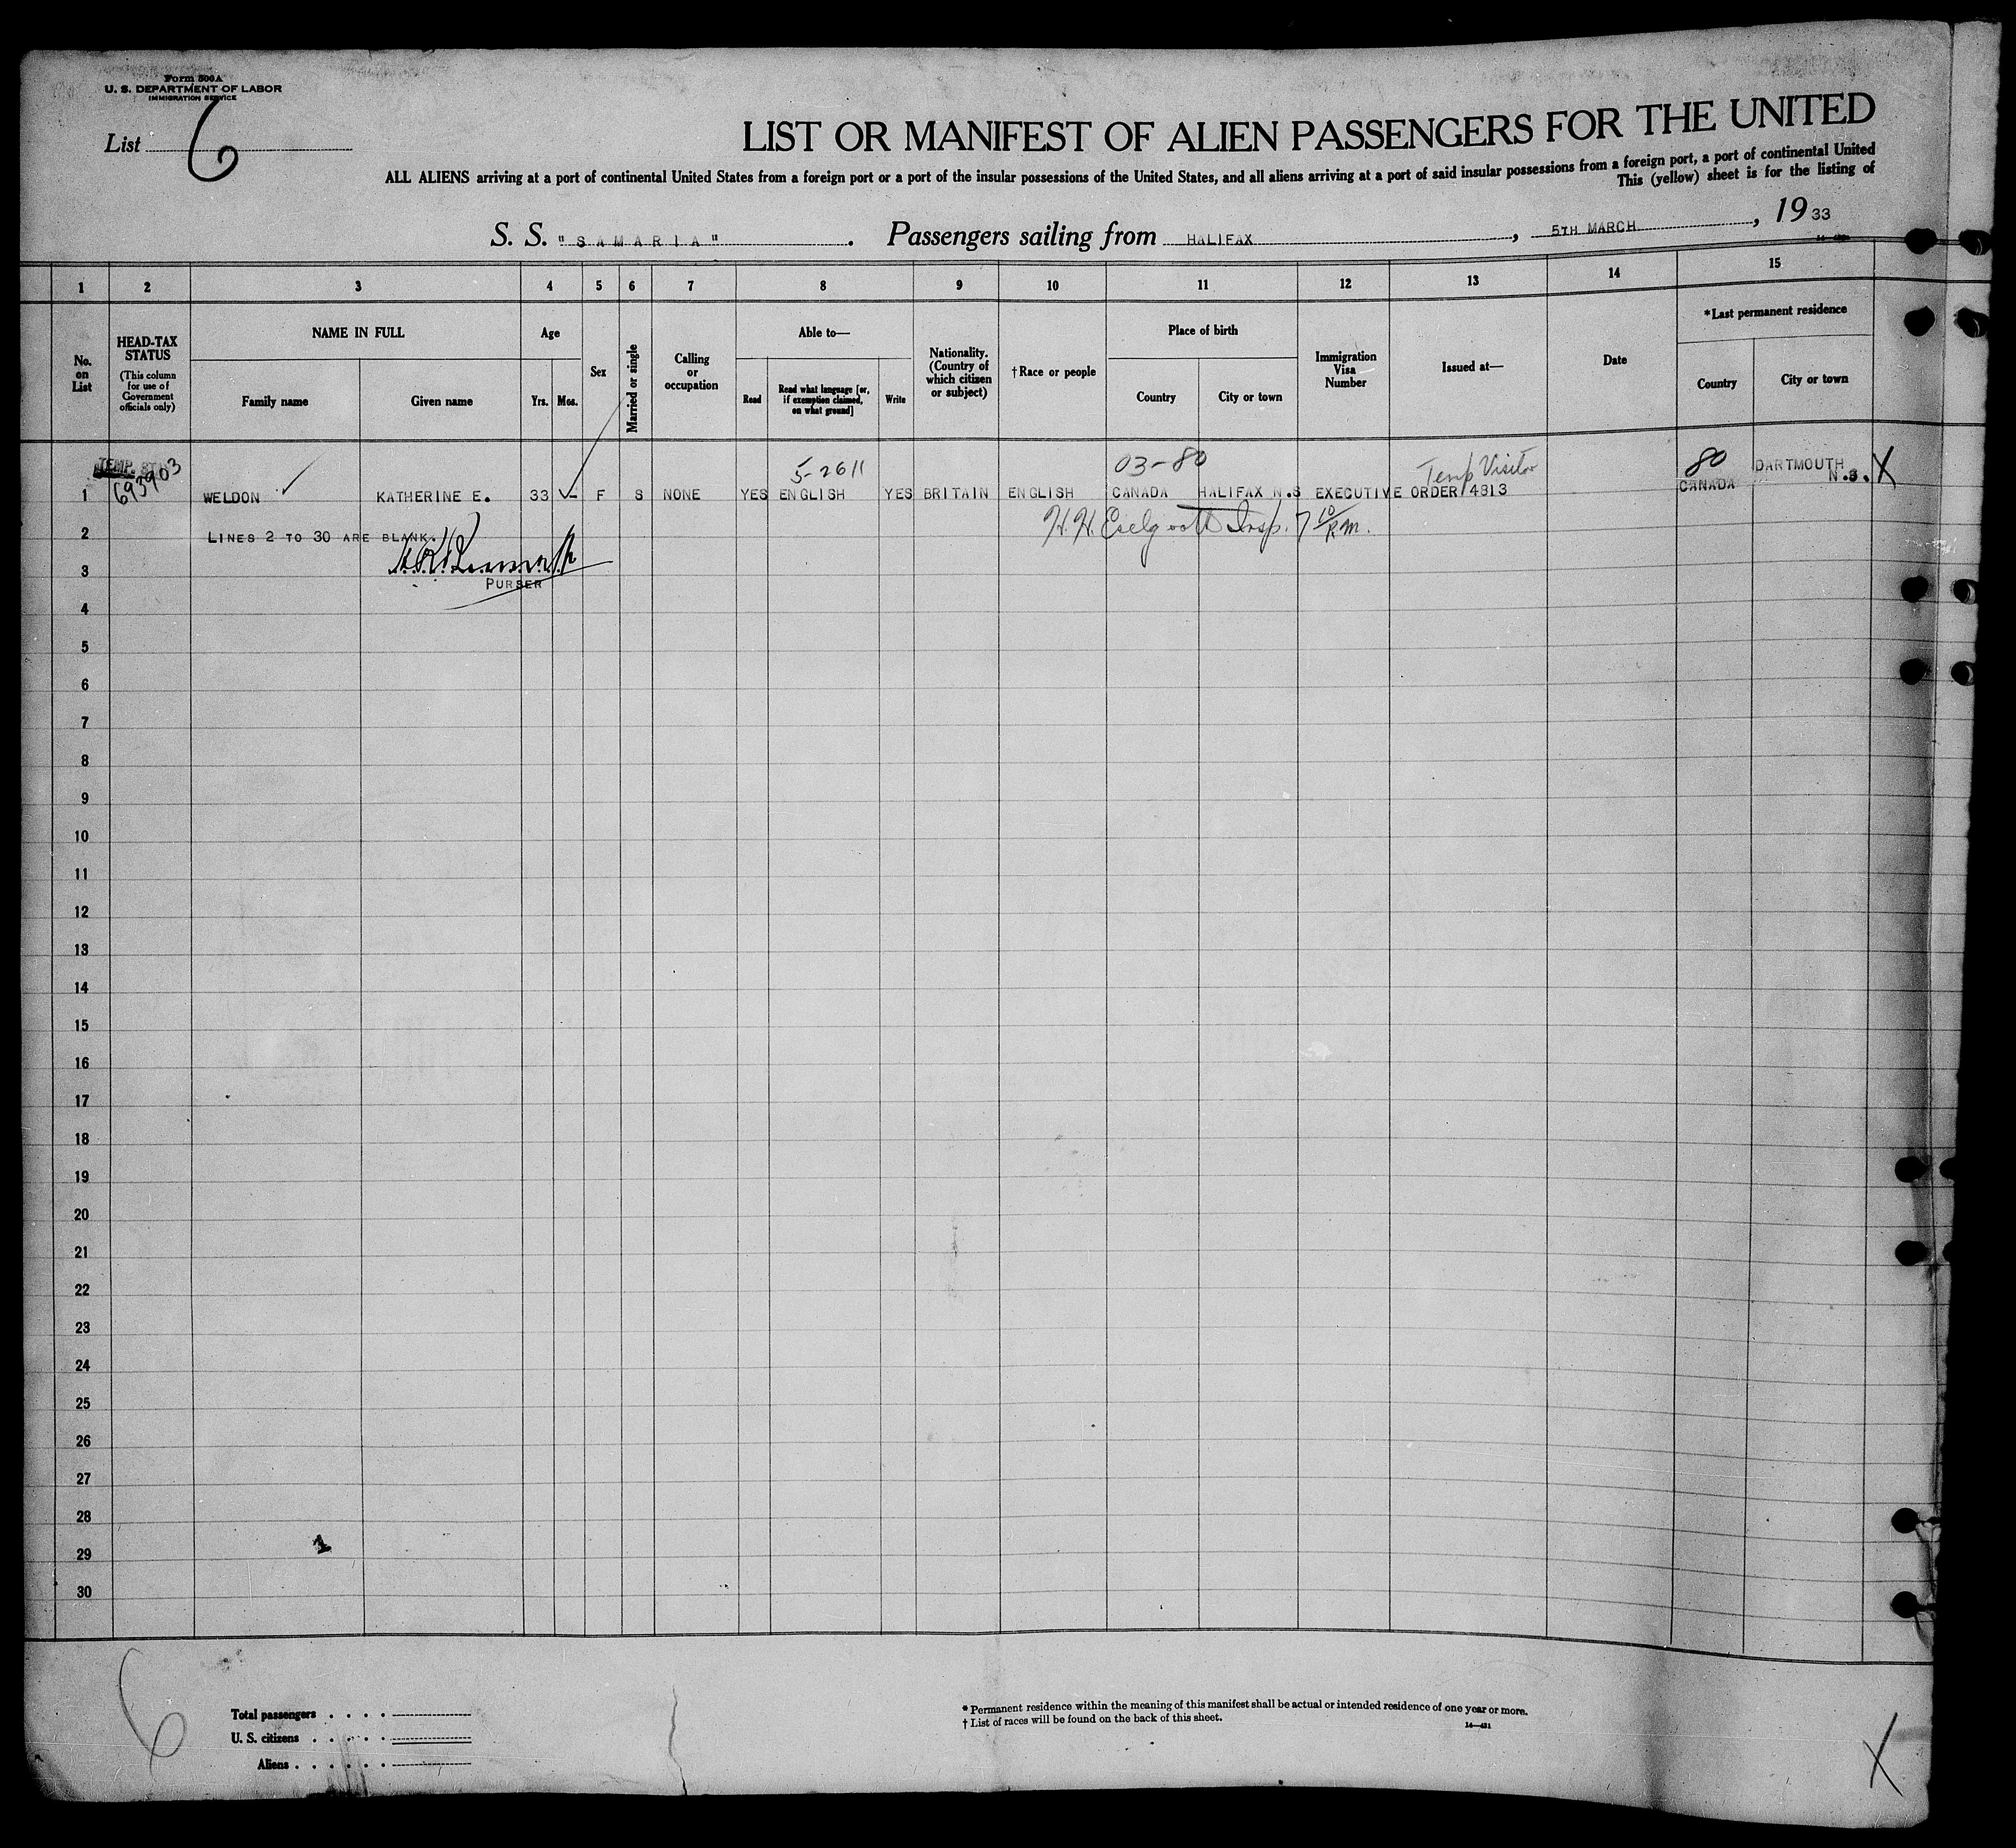 Form 500A
U. S. DEPARTMENT OF LABOR
IMMIGRATION SERVICE
List 6
LIST OR MANIFEST OF ALIEN PASSENGERS FOR THE UNITED
ALL ALIENS arriving at a port of continental United States from a foreign port or a port of the insular possessions of the United States, and all aliens arriving at a port of said insular possessions from a foreign port, a port of continental United
This (yellow) sheet is for the listing of
S. S. "SAMARIA". Passengers sailing from HALIFAX, 5TH MARCH, 1933
1 2 3 4 5 6 7 8 9 10 11 12 13 14 15
No. on List
HEAD-TAX STATUS
(This column for use of Government officials only)
NAME IN FULL
Family name
Given name
Age
Yrs. Mos.
Sex
Married or single
Calling or occupation
Able to—
Read
Read what language [or, if exemption claimed, on what ground]
Write
Nationality. (Country of which citizen or subject)
† Race or people
Place of birth
Country
City or town
Immigration Visa Number
Issued at—
Date
*Last permanent residence
Country
City or town
TEMP. 693903
5-2611
03-80
Temp Visitor
80
1 WELDON KATHERINE E. 33 – F S NONE YES ENGLISH YES BRITAIN ENGLISH CANADA HALIFAX N.S EXECUTIVE ORDER 4813 CANADA DARTMOUTH N.S. X
2 LINES 2 TO 30 ARE BLANK.
H. H. Insp. 7 10 P.M.
3 PURSER
4
5
6
7
8
9
10
11
12
13
14
15
16
17
18
19
20
21
22
23
24
25
26
27
28
29
30
1
6
Total passengers
U. S. citizens
Aliens
* Permanent residence within the meaning of this manifest shall be actual or intended residence of one year or more.
† List of races will be found on the back of this sheet.
14—431
X